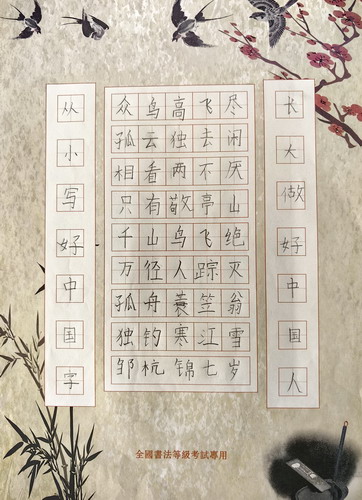 从小写好中国字
众鸟高飞尽
孤云独去闲
相看两不厌
只有敬亭山
千山鸟飞绝
万径人踪灭
孤舟蓑笠翁
独钓寒江雪
邹杭锦七岁
长大做好中国人
全國書法等級考試專用